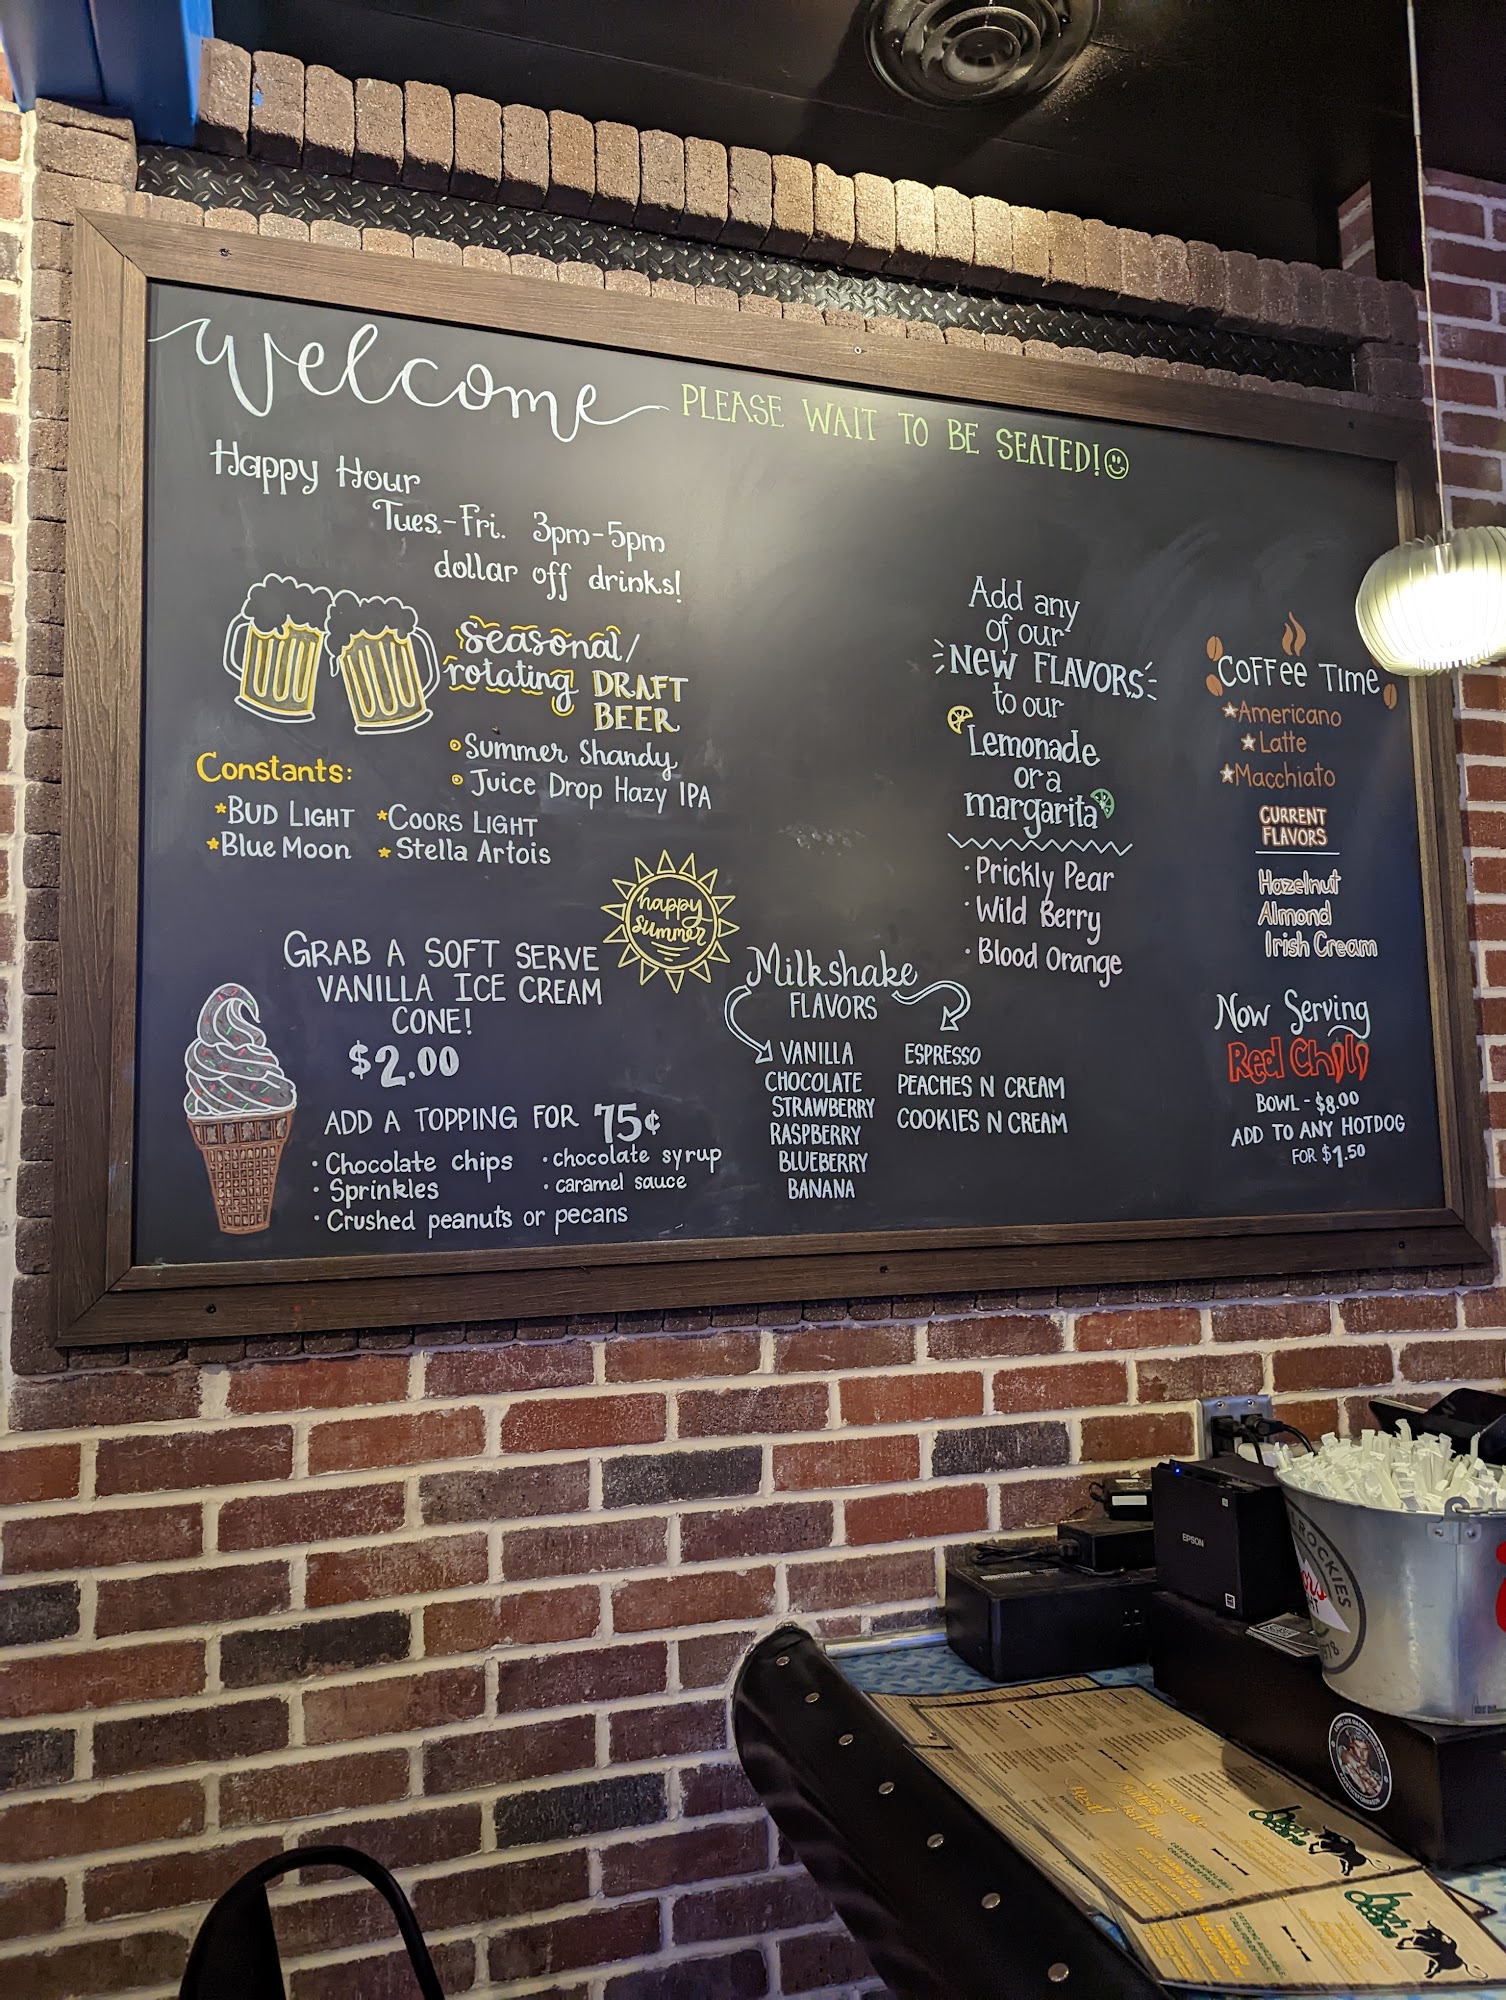 Welcome
PLEASE WAIT TO BE SEATED!
Happy Hour
Tues.-Fri. 3pm-5pm
dollar off drinks!
Seasonal/
rotating DRAFT
BEER
Summer Shandy
Juice Drop Hazy IPA
Constants:
BUD LIGHT
COORS LIGHT
Blue Moon
Stella Artois
happy
summer
GRAB A SOFT SERVE
VANILLA ICE CREAM
CONE!
$2.00
ADD A TOPPING FOR 75¢
Chocolate chips
chocolate syrup
Sprinkles
caramel sauce
Crushed peanuts or pecans
Milkshake
FLAVORS
VANILLA
CHOCOLATE
STRAWBERRY
RASPBERRY
BLUEBERRY
BANANA
ESPRESSO
PEACHES N CREAM
COOKIES N CREAM
Add any
of our
NEW FLAVORS
to our
Lemonade
or a
margarita
Prickly Pear
Wild Berry
Blood Orange
Coffee Time
Americano
Latte
Macchiato
CURRENT
FLAVORS
Hazelnut
Almond
Irish Cream
Now Serving
Red Chili
BOWL - $8.00
ADD TO ANY HOTDOG
FOR $1.50
EPSON
ROCKIES